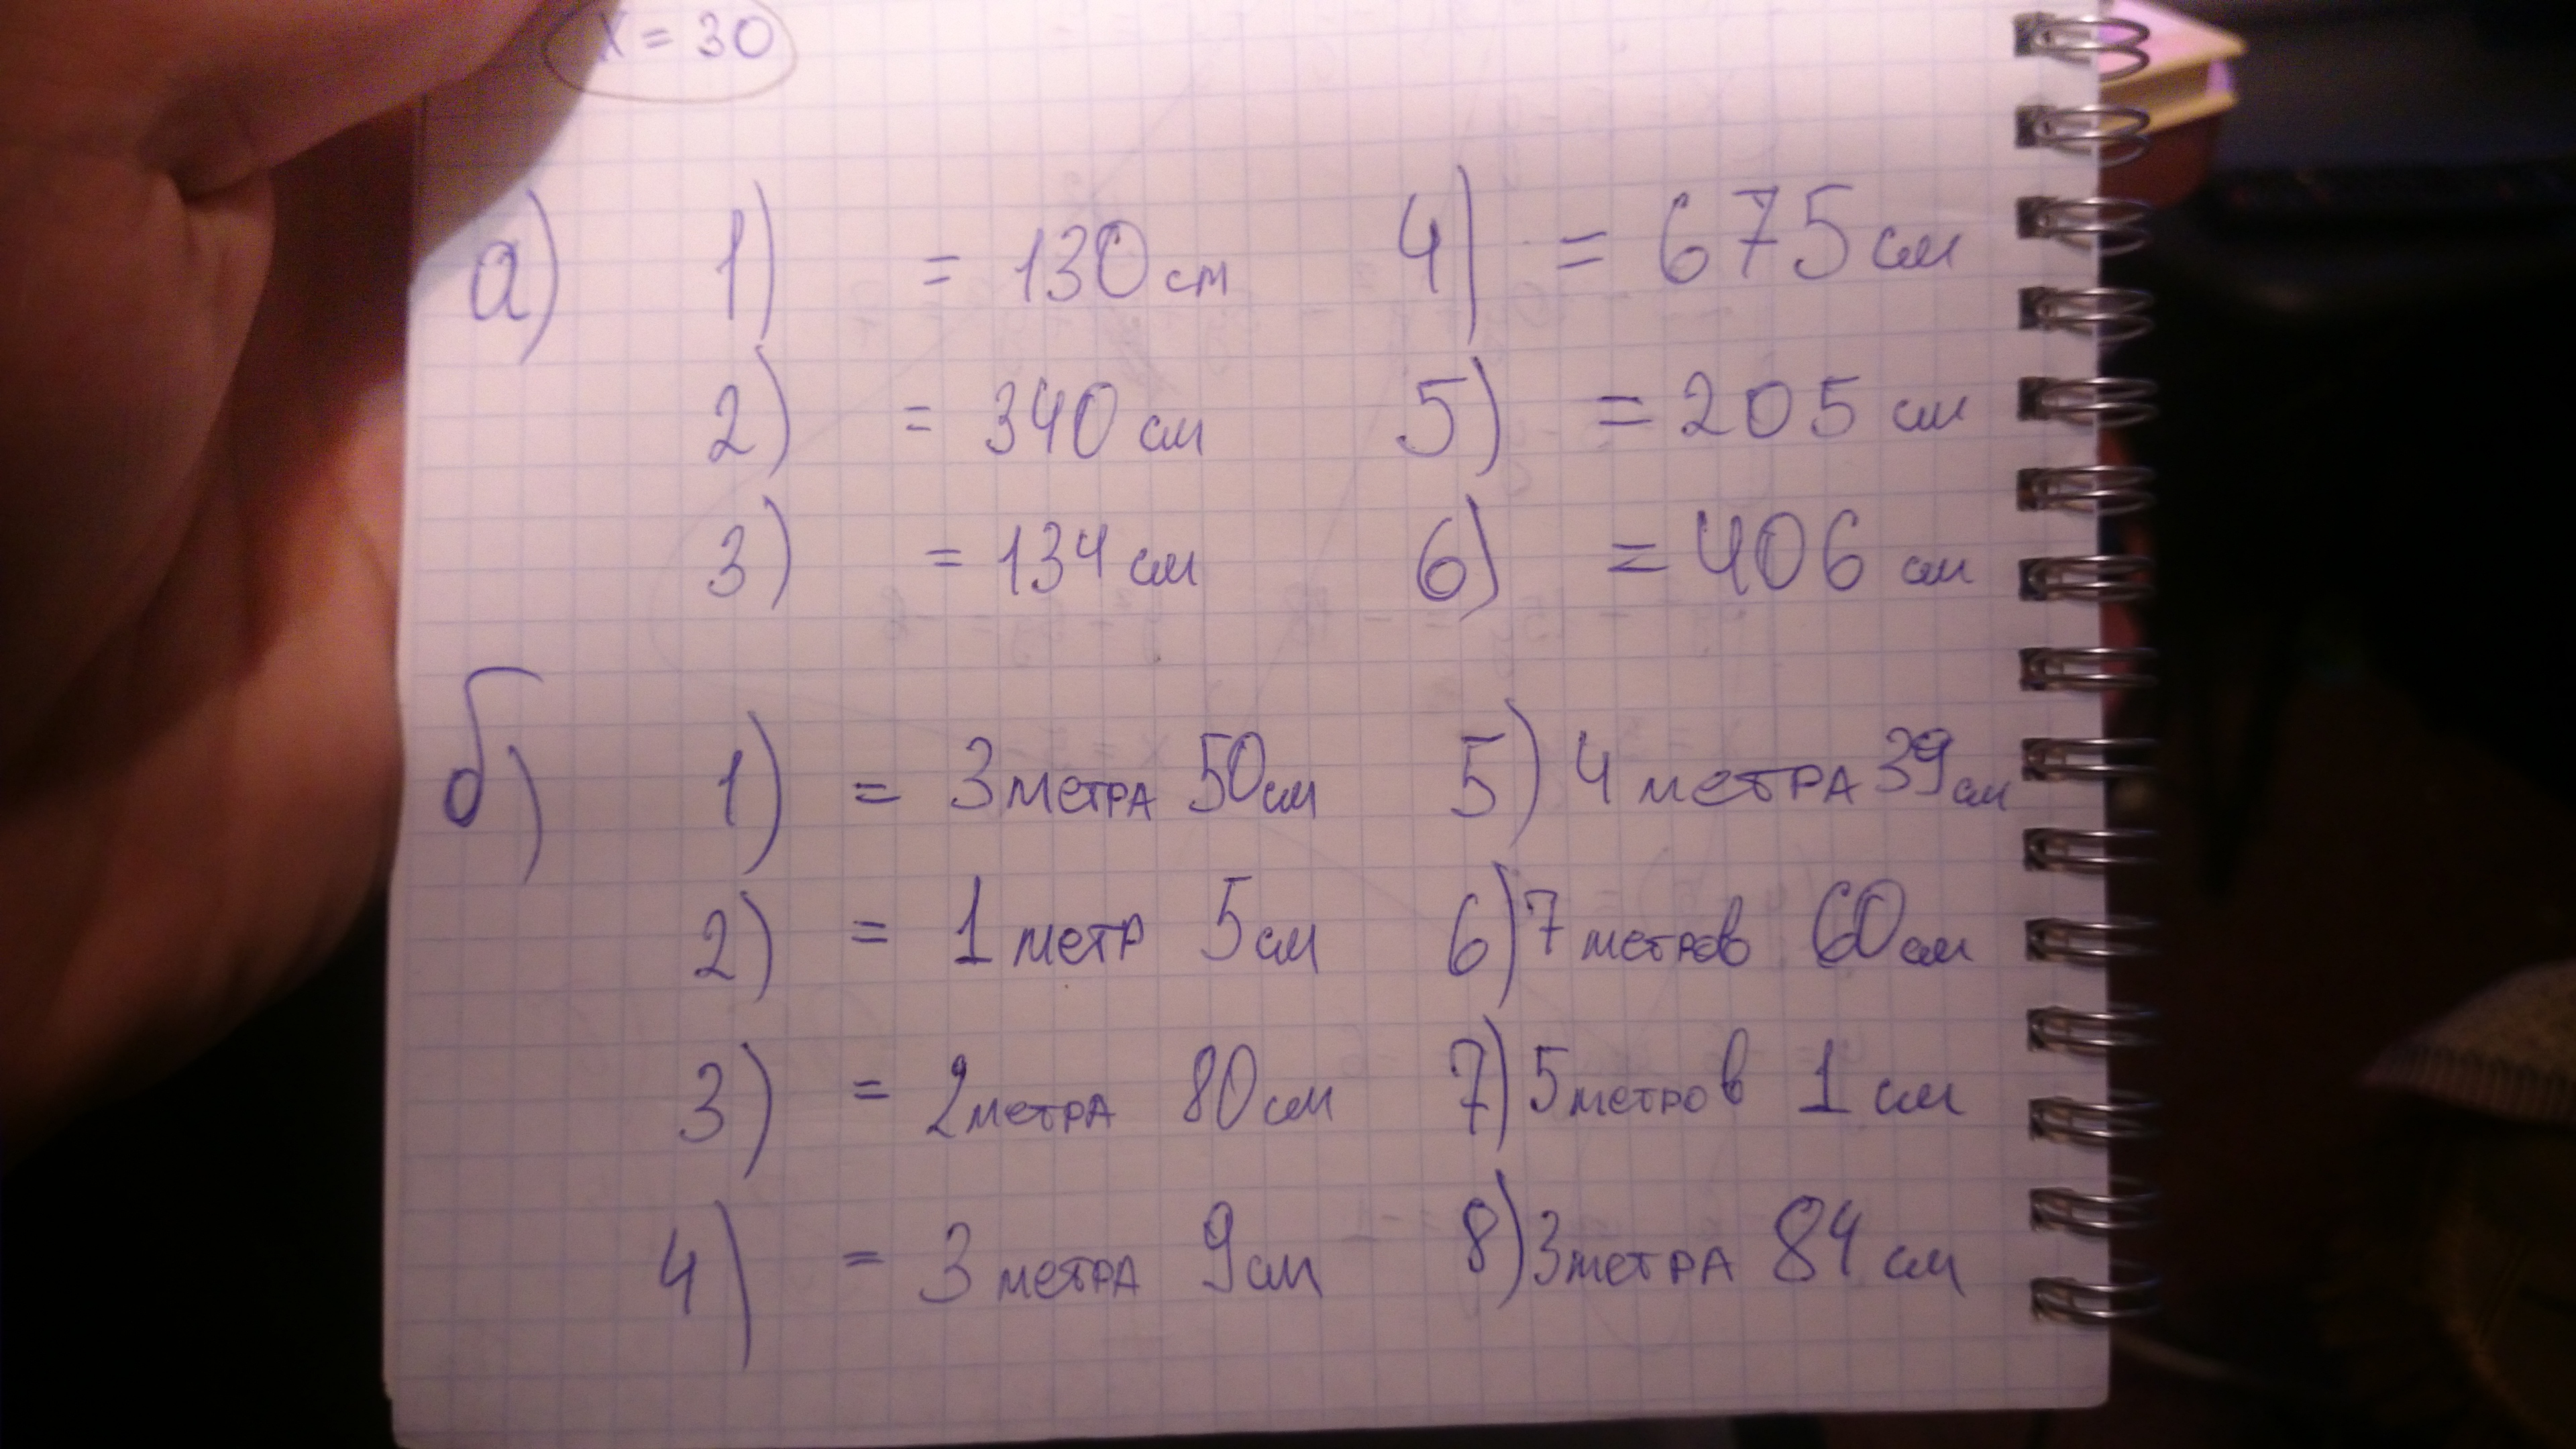 x = 30
а) 1) = 130 см 4) = 675 см
2) = 340 см 5) = 205 см
3) = 134 см 6) = 406 см
б) 1) = 3 метра 50 см 5) 4 метра 39 см
2) = 1 метр 5 см 6) 7 метров 60 см
3) = 2 метра 80 см 7) 5 метров 1 см
4) = 3 метра 9 см 8) 3 метра 84 см